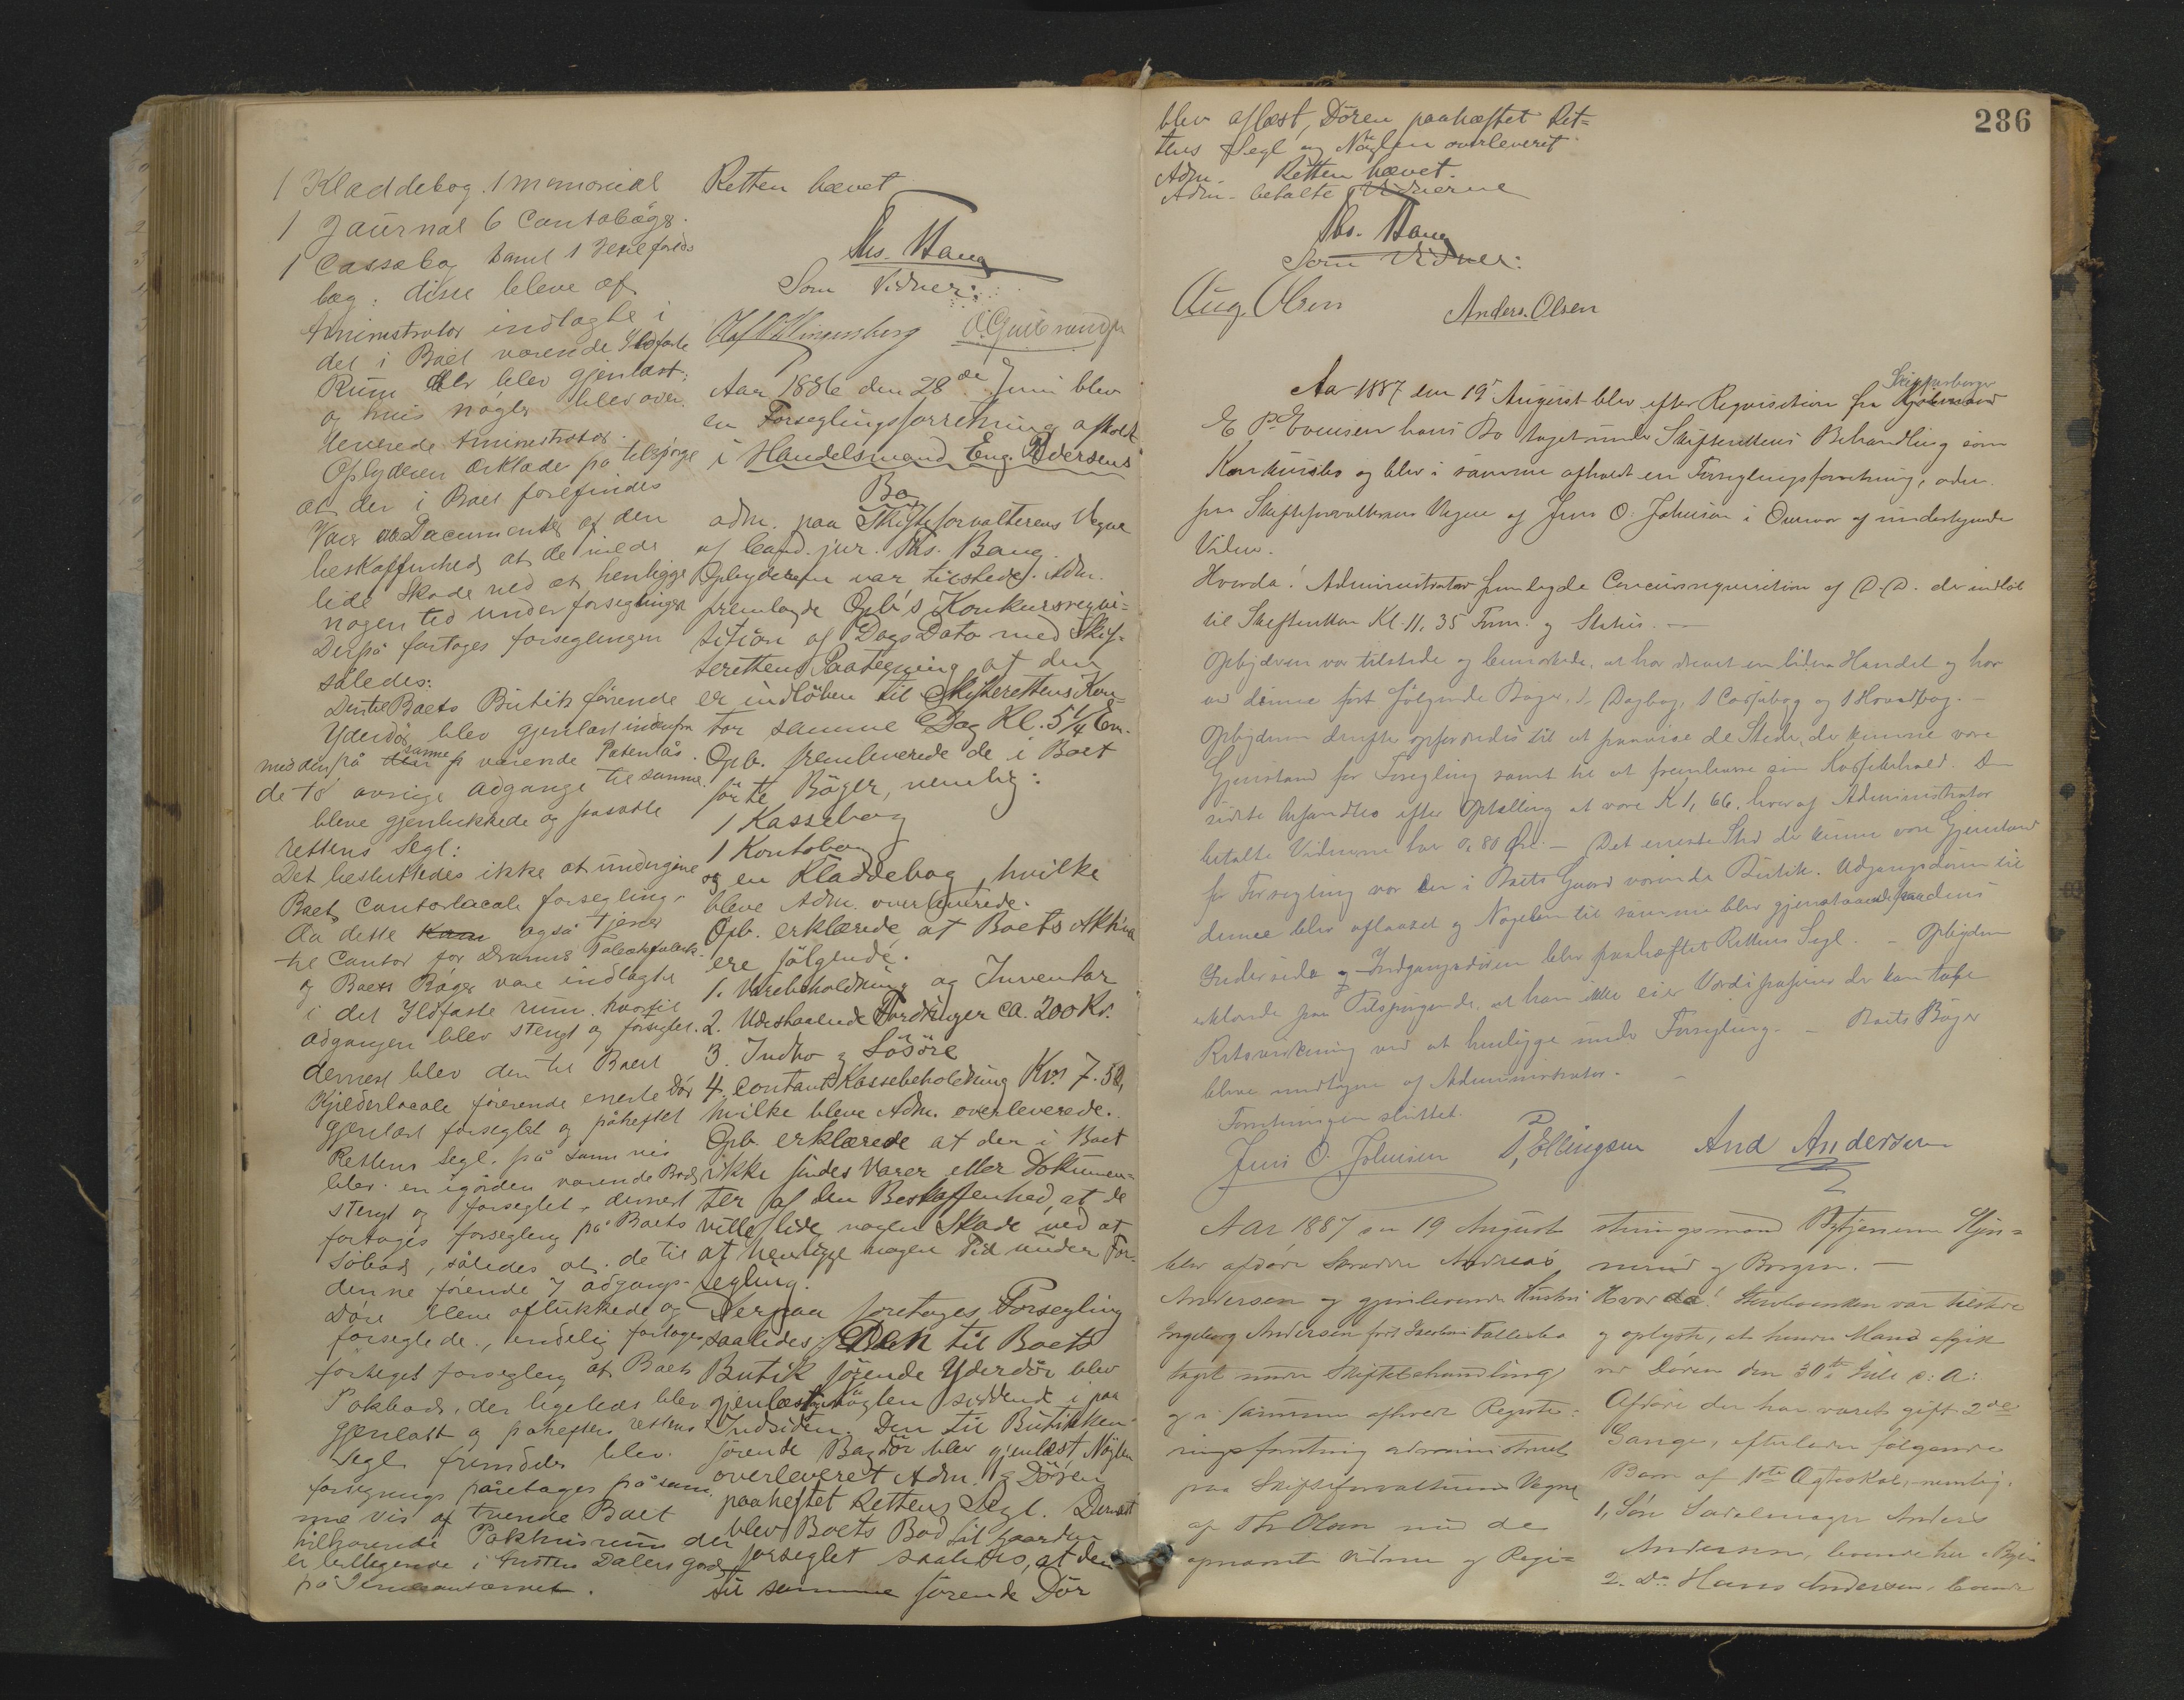 1 Kladdebog. 1 Memorial
1 Jaurnal 6 Contobøger.
1 Cassabog samt 1
bog: disse bleve af
Aministrator indlagte i
det i Boet værende Ildfaste
Rum der blev gjenlæst;
og hvis nøgler blev over
leverede Aministrator.
Opbyderen ærklade på tilspørge
at der i Boet forefindes
Varer Documenter af den
beskaffenhed at de vilde
lide Skade ved at henligge
nogen tid under forseglingen
Derpå fortoges forseglingen
således:
Den til Boets Butik førende
Yderdør blev gjenlæst indenfra
med den på samme værende Patentlås.
de to øvrige adgange til samme
bleve gjenlukkede og påsatte
rettens Segl:
Det besluttedes ikke at undergive
Boets Contorlocale forsegling
da dette også tjener
til Contor for Drammens
og Boets Bøger vare indlagte
i det Ildfaste rum, hvortil
adgangen blev stengt og forseglet.
dernest blev den til Boets
Kjelderlocale førende eneste Dør
gjenlæst forseglet og påheftet
Rettens Segl. på samme vis
blev en i gården værende Bod
stengt og forseglet, dernest
fortoges forsegling på Boets
Søbod, således at de til
denne førende 7 adgangs-
Døre bleve aflukkede og
forseglede., endelig fortoges
forseglng af Boets
Pakbod, der ligeledes blev
gjenlåst og påheftet rettens
Segl fremdeles blev
forseglings påretages på sam
me vis af tvende Boet
tilhørende Pakhusrum der
er beliggende i Dalers gård
på
Retten hævet
Ths. Bang
Som Vidner:
Aar 1886 den 28de Juni blev
en Forseglingsforretning afholdt
i Handelsmand Eng. Pedersens
Bo
adm. paa Skifteforvalterens Vegne
af Cand. jur. Ths. Bang.
Opbyderen var tilstede. Adm.
fremlagde Opb's Konkursreqvi=
sition af Dags Dato med Skif-
terettens Paategning at den
er indløben til Skifterettens Kon-
tor samme Dag Kl. 5 1/4 Em.
Opb. fremleverede de i Boet
førte Bøger, nemlig:
1 Kassebog
1 Kontobog
og en Kladdebog, hvilke
bleve Adm. overleverede.
Opb. erklærede, at Boets Aktiva
ere følgende:
1. Varebeholdning og Inventar
2. Udestaaende Fordringer ca. 200 Kr.
3. Indbo og Løsøre
4. Contant Kassebeholdning Kr. 7.50,
hvilke bleve Adm. overleverede.
Opb. erklærede at der i Boet
ikke findes Varer eller Dokumen=
ter af den Beskaffenhed, at de
ville lide nogen Skade ved at
at henligge nogen Tid under For-
segling.
Derpaa foretoges Forsegling
saaledes: Den til Boets
Butik førende Yderdør blev
gjenlæst Nøglen siddende i paa
Indsiden. Den til Butikken
førende Bagdør blev gjenlæst Nøglen
overleveret Adm. og Døren
paaheftet Rettens Segl. Dernæst
blev Boets Bod til Gaarden
forseglet saaledes, at den
til samme førende Dør
286
blev aflæst, Døren paahæftet Ret=
tens Segl og Nøglen overleveret
Adm. Retten hævet.
Adm. betalte Vidnerne
Ths. Bang
Som Vidner:
Aug. Olsen Anders. Olsen
Aar 1887 den 19 August blev efter Reqvisition fra Skipperborger
E P Evensen hans Bo taget under Skifterettens Behandling som
Konkursbo og blev i samme afholdt en Forseglingsforretning, adm.
paa Skifteforvalterens Vegne af Jens O. Johnsen i Overvær af undertegnede
Vidner.
Hvorda! Administrator fremlagde Concursrequisition af D.D. der indløb
til Skifteretten Kl. 11,35 Form. og Status. —
Opbyderen var tilstede og bemærkede, at han drevet en liden Handel og har
ved denne ført følgende Bøger, 1 Dagbog, 1 Cassabog og 1 Hovedbog. —
Opbyderen derefter opfordredes til at paavise de Steder, der kunne være
Gjenstand for Forsegling samt til at fremlevere sin Kassebehold. Den
sidste befandtes efter Optælling at være K 1,66, hvoraf Administrator
betalte Vidnerne hver 0,80 Øre. — Det eneste Sted der kunne være Gjenstand
for Forsegling var den i Boets Gaard værende Butik. Adgangsdøren til
denne blev aflaaset og Nøglen til samme blev gjenstaaende paa dens
Inderside og Indgangsdøren blev paahæftet Rettens Segl. — Opbyderen
erklærede paa Tilspørgende, at han ikke eier Værdipapirer der kan tabe
Retsvirkning ved at henligge under Forsegling. — Boets Bøger
bleve modtagne af Administrator. —
Forretningen sluttet.
Jens O. Johnsen P, Ellingsen And Andersen
Aar 1887 den 19 August
blev afdøde Andreas
Andersen og gjenlevende Hustru
Ingeborg Andersen født Fællesbo
taget under Skiftebehandling
og i samme afholdt Registe=
ringsforretning administreret
paa Skifteforvalterens Vegne
af Th Olsen med de
opnævnte Vidner og Regi=
streringsmænd Bytjenerne
og Borgen. —
Hvorda! Sterboenken var tilstede
og oplyste, at hendes Mand afgik
ved Døden den 30te Juli d. A:
Afdøde der har været gift 2de
Gange, efterlader følgende
Børn af 1ste Ægteskab, nemlig:
1, Søn Sadelmager Anders
Andersen, boende her i Byen
2. Do Hans Andersen, boende